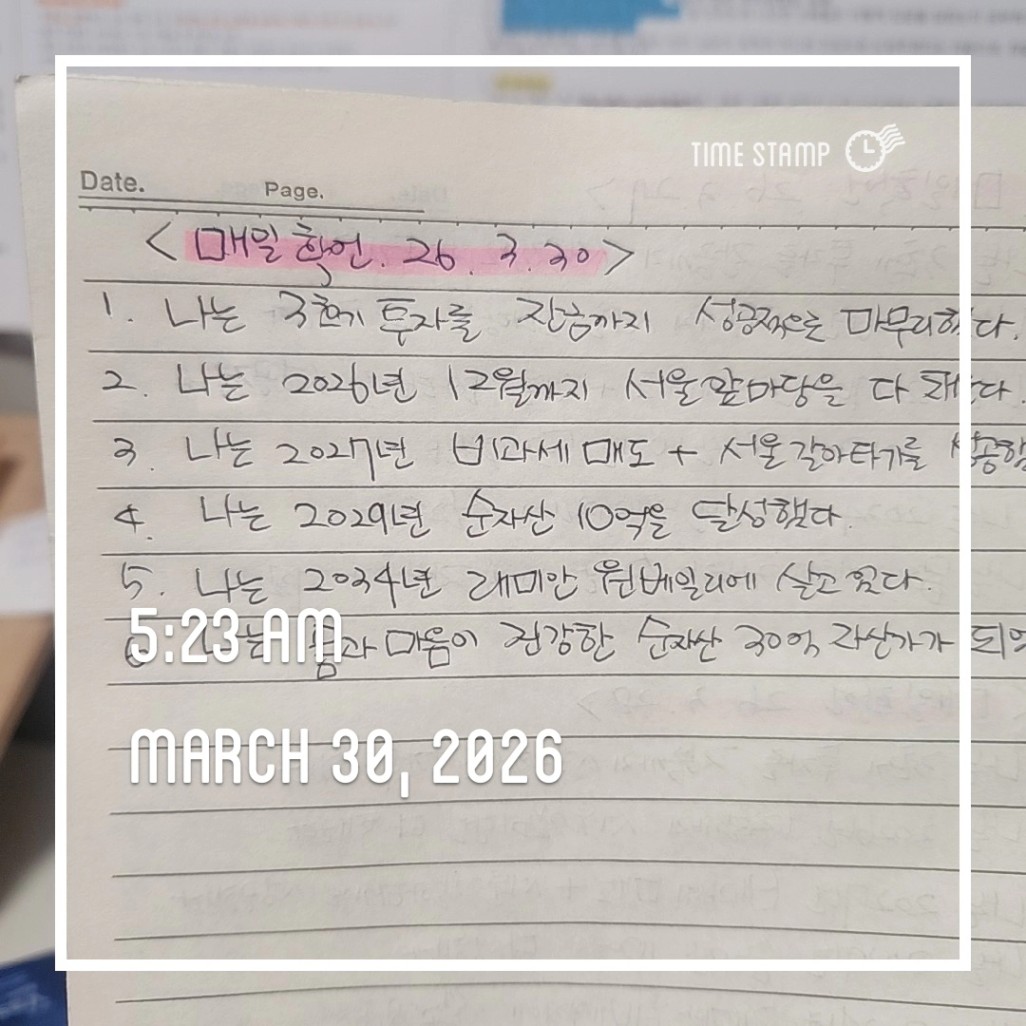 TIME STAMP
Date. Page.
< 매일 확언. 26. 3. 30 >
1. 나는 3호기 투자를 잔금까지 성공적으로 마무리했다.
2. 나는 2026년 12월까지 서울 앞마당을 다 했다.
3. 나는 2027년 비과세 매도 + 서울 갈아타기를 성공
4. 나는 2029년 순자산 10억을 달성했다.
5. 나는 2034년 래미안 원베일리에 살고 있다.
6. 나는 몸과 마음이 건강한 순자산 30억 자산가가 되었
5:23 AM
MARCH 30, 2026